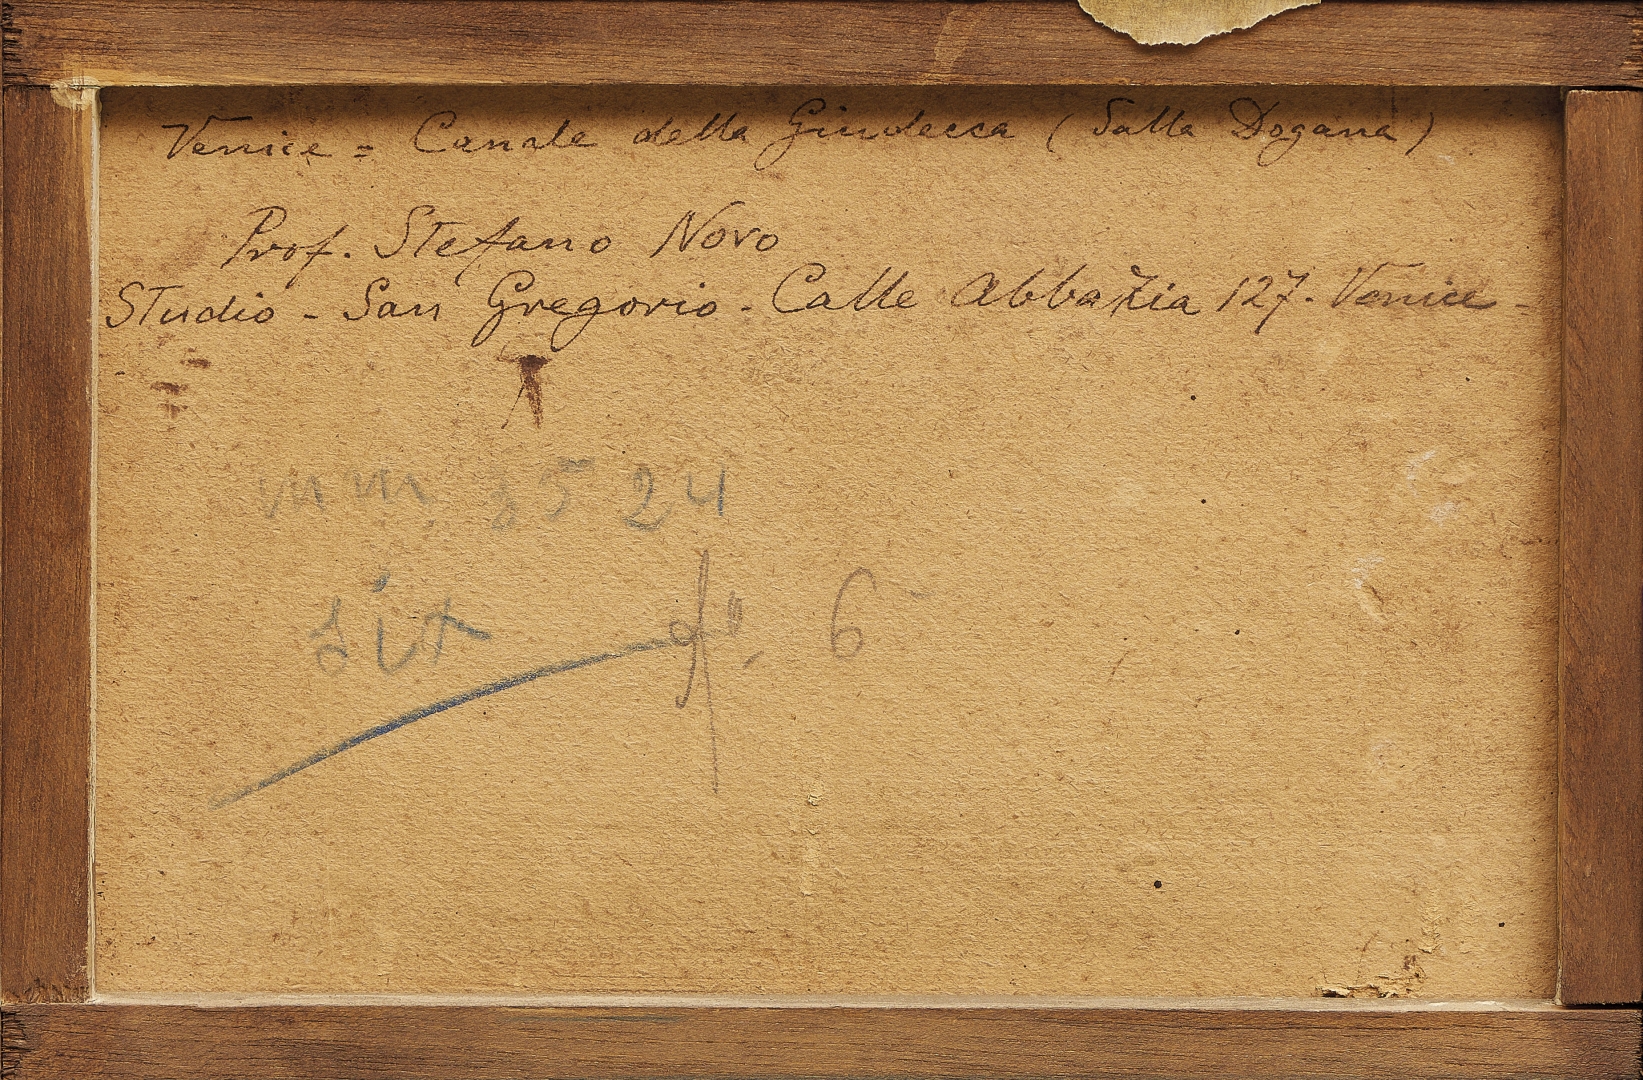 Venice = Canale della Giudecca (Salla Dogana)
Prof. Stefano Novo
Studio - San Gregorio - Calle Abbazia 127 - Venice -
mm 3524
six
No - 6